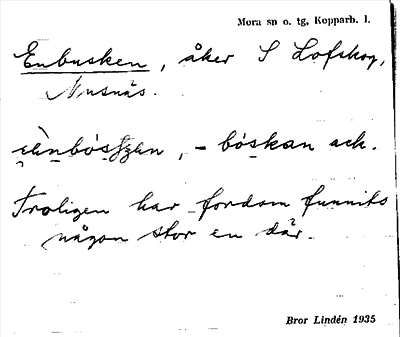 Mora sn o. tg, Kopparb. l.
Enbusken, åker S Lofskog,
Nusnäs.
- böskan ack.
Troligen har fordom funnits
någon stor en där.
Bror Lindén 1935